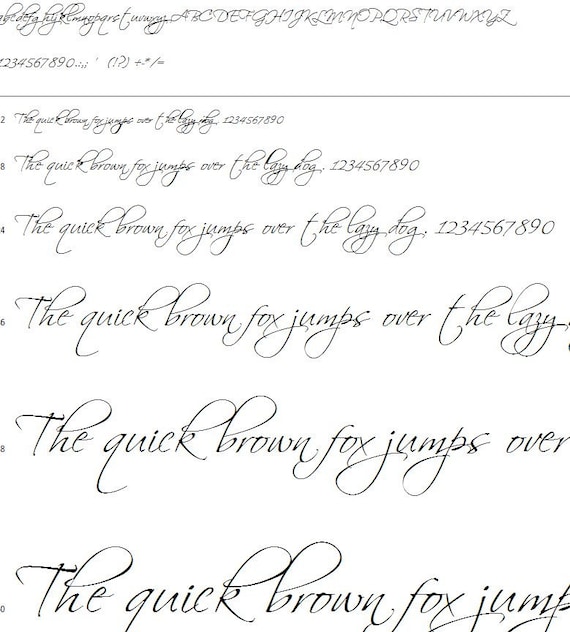 abcdefghijklmnopqrstuvwxyz ABCDEFGHIJKLMNOPQRSTUVWXYZ
1234567890.:,; ' (!?) +-*/=
2 The quick brown fox jumps over the lazy dog. 1234567890
8 The quick brown fox jumps over the lazy dog. 1234567890
4 The quick brown fox jumps over the lazy dog. 1234567890
6 The quick brown fox jumps over the lazy
8 The quick brown fox jumps over
0 The quick brown fox jump